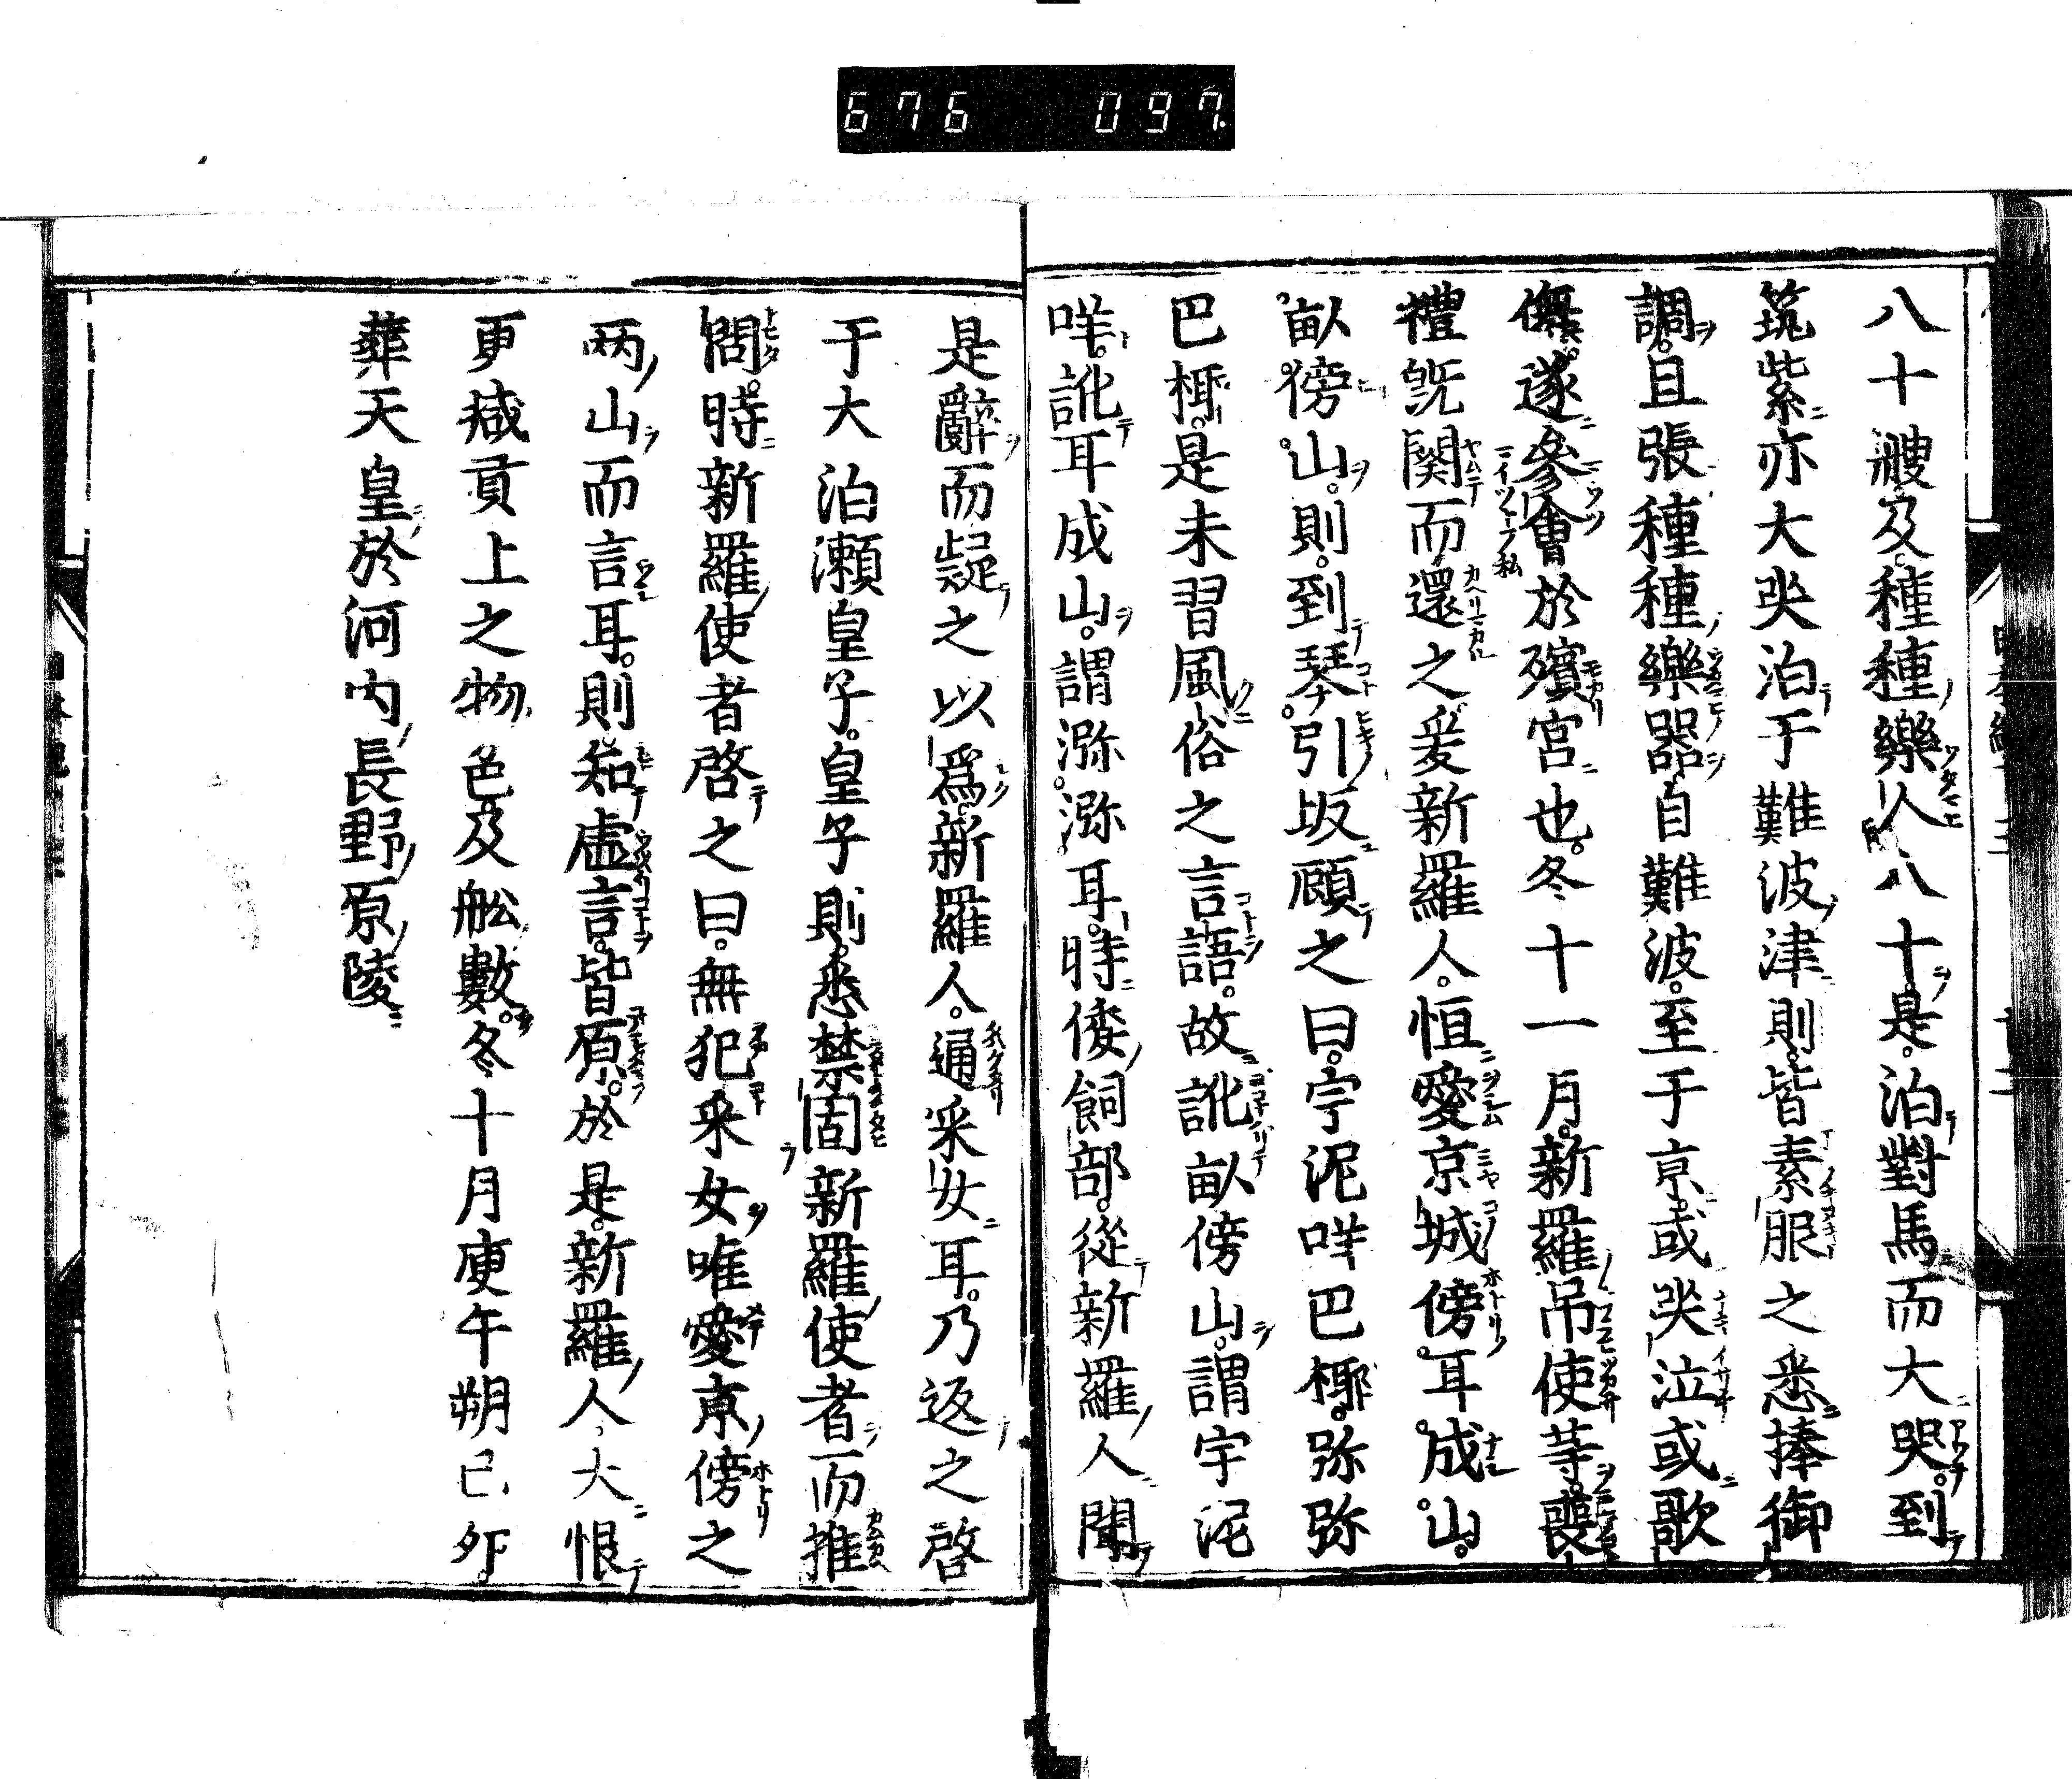 676 097
八十艘及種種樂人八十是泊對馬而大哭到
筑紫亦大哭泊于難波津則皆素服之悉捧御
調且張種種樂器自難波至于京或哭泣或歌
儛遂參會於殯宮也冬十一月新羅吊使等喪
禮既闋而還之爰新羅人恒愛京城傍耳成山
畝傍山則到琴引坂顧之曰宇泥咩巴椰弥弥
巴椰是未習風俗之言語故訛畝傍山謂宇泥
咩訛耳成山謂瀰瀰耳時倭飼部從新羅人聞
是辭而疑之以爲新羅人通采女耳乃返之啓
于大泊瀬皇子皇子則悉禁固新羅使者而推
問時新羅使者啓之曰無犯采女唯愛京傍之
两山而言耳則知虛言皆原於是新羅人大恨
更減貢上之物色及舩數冬十月庚午朔己夘
葬天皇於河内長野原陵